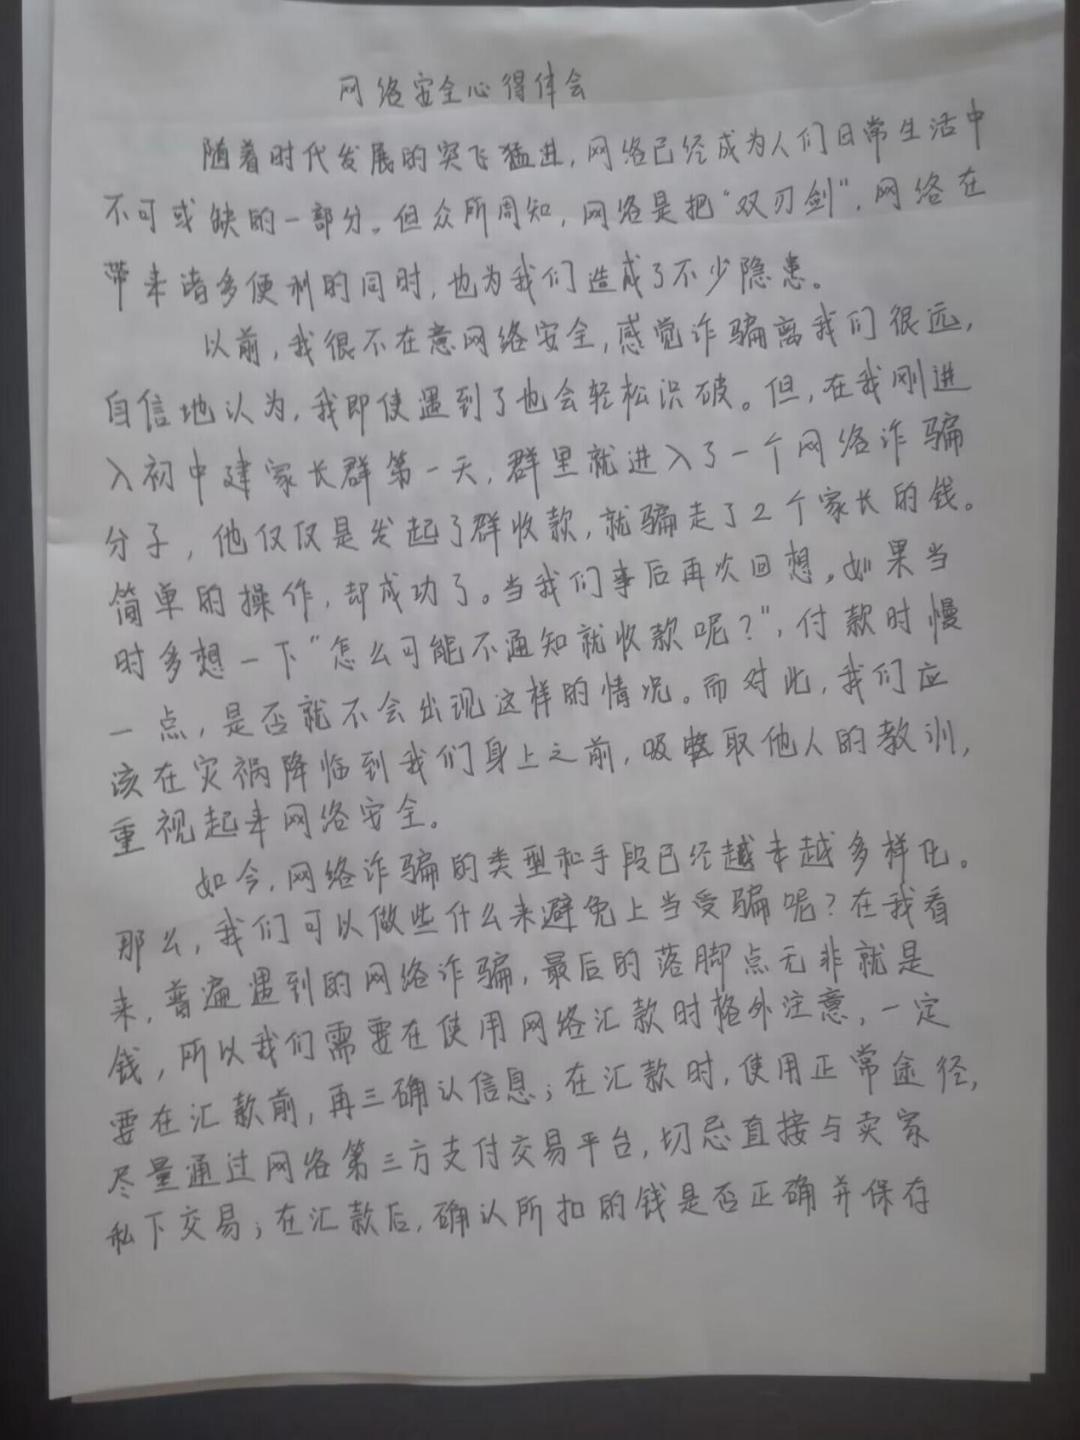 网络安全心得体会
随着时代发展的突飞猛进，网络已经成为人们日常生活中
不可或缺的一部分。但众所周知，网络是把“双刃剑”，网络在
带来诸多便利的同时，也为我们造成了不少隐患。
以前，我很不在意网络安全，感觉诈骗离我们很远，
自信地认为，我即使遇到了也会轻松识破。但，在我刚进
入初中建家长群第一天，群里就进入了一个网络诈骗
分子，他仅仅是发起了群收款，就骗走了2个家长的钱。
简单的操作，却成功了。当我们事后再次回想，如果当
时多想一下“怎么可能不通知就收款呢？”，付款时慢
一点，是否就不会出现这样的情况。而对此，我们应
该在灾祸降临到我们身上之前，吸取他人的教训，
重视起来网络安全。
如今，网络诈骗的类型和手段已经越来越多样化。
那么，我们可以做些什么来避免上当受骗呢？在我看
来，普遍遇到的网络诈骗，最后的落脚点无非就是
钱，所以我们需要在使用网络汇款时格外注意，一定
要在汇款前，再三确认信息；在汇款时，使用正常途径，
尽量通过网络第三方支付交易平台，切忌直接与卖家
私下交易；在汇款后，确认所扣的钱是否正确并保存